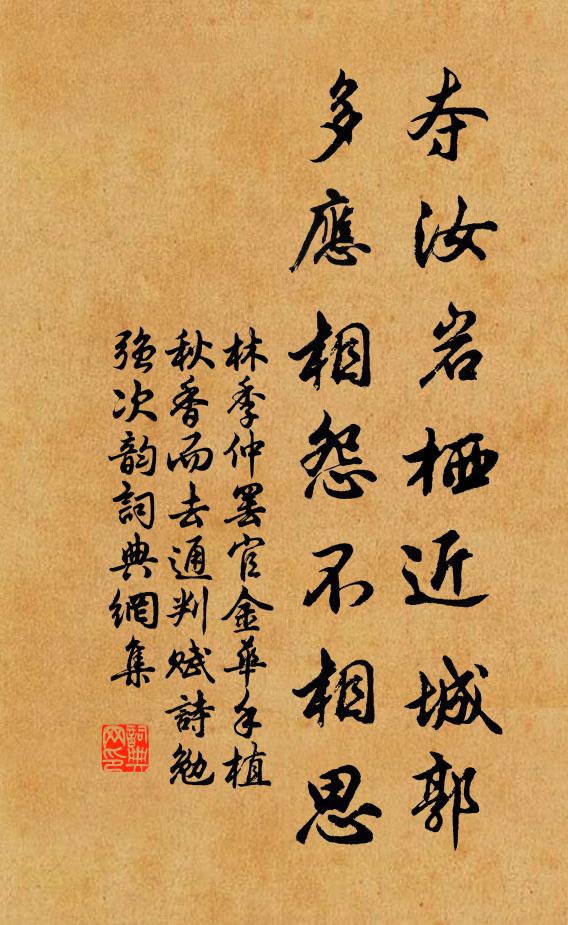 夺汝岩栖近城郭
多應相怨不相思
林季仲罢官金華手植
秋香而去通判赋詩勉
强次韵詞典網集
詞典网印